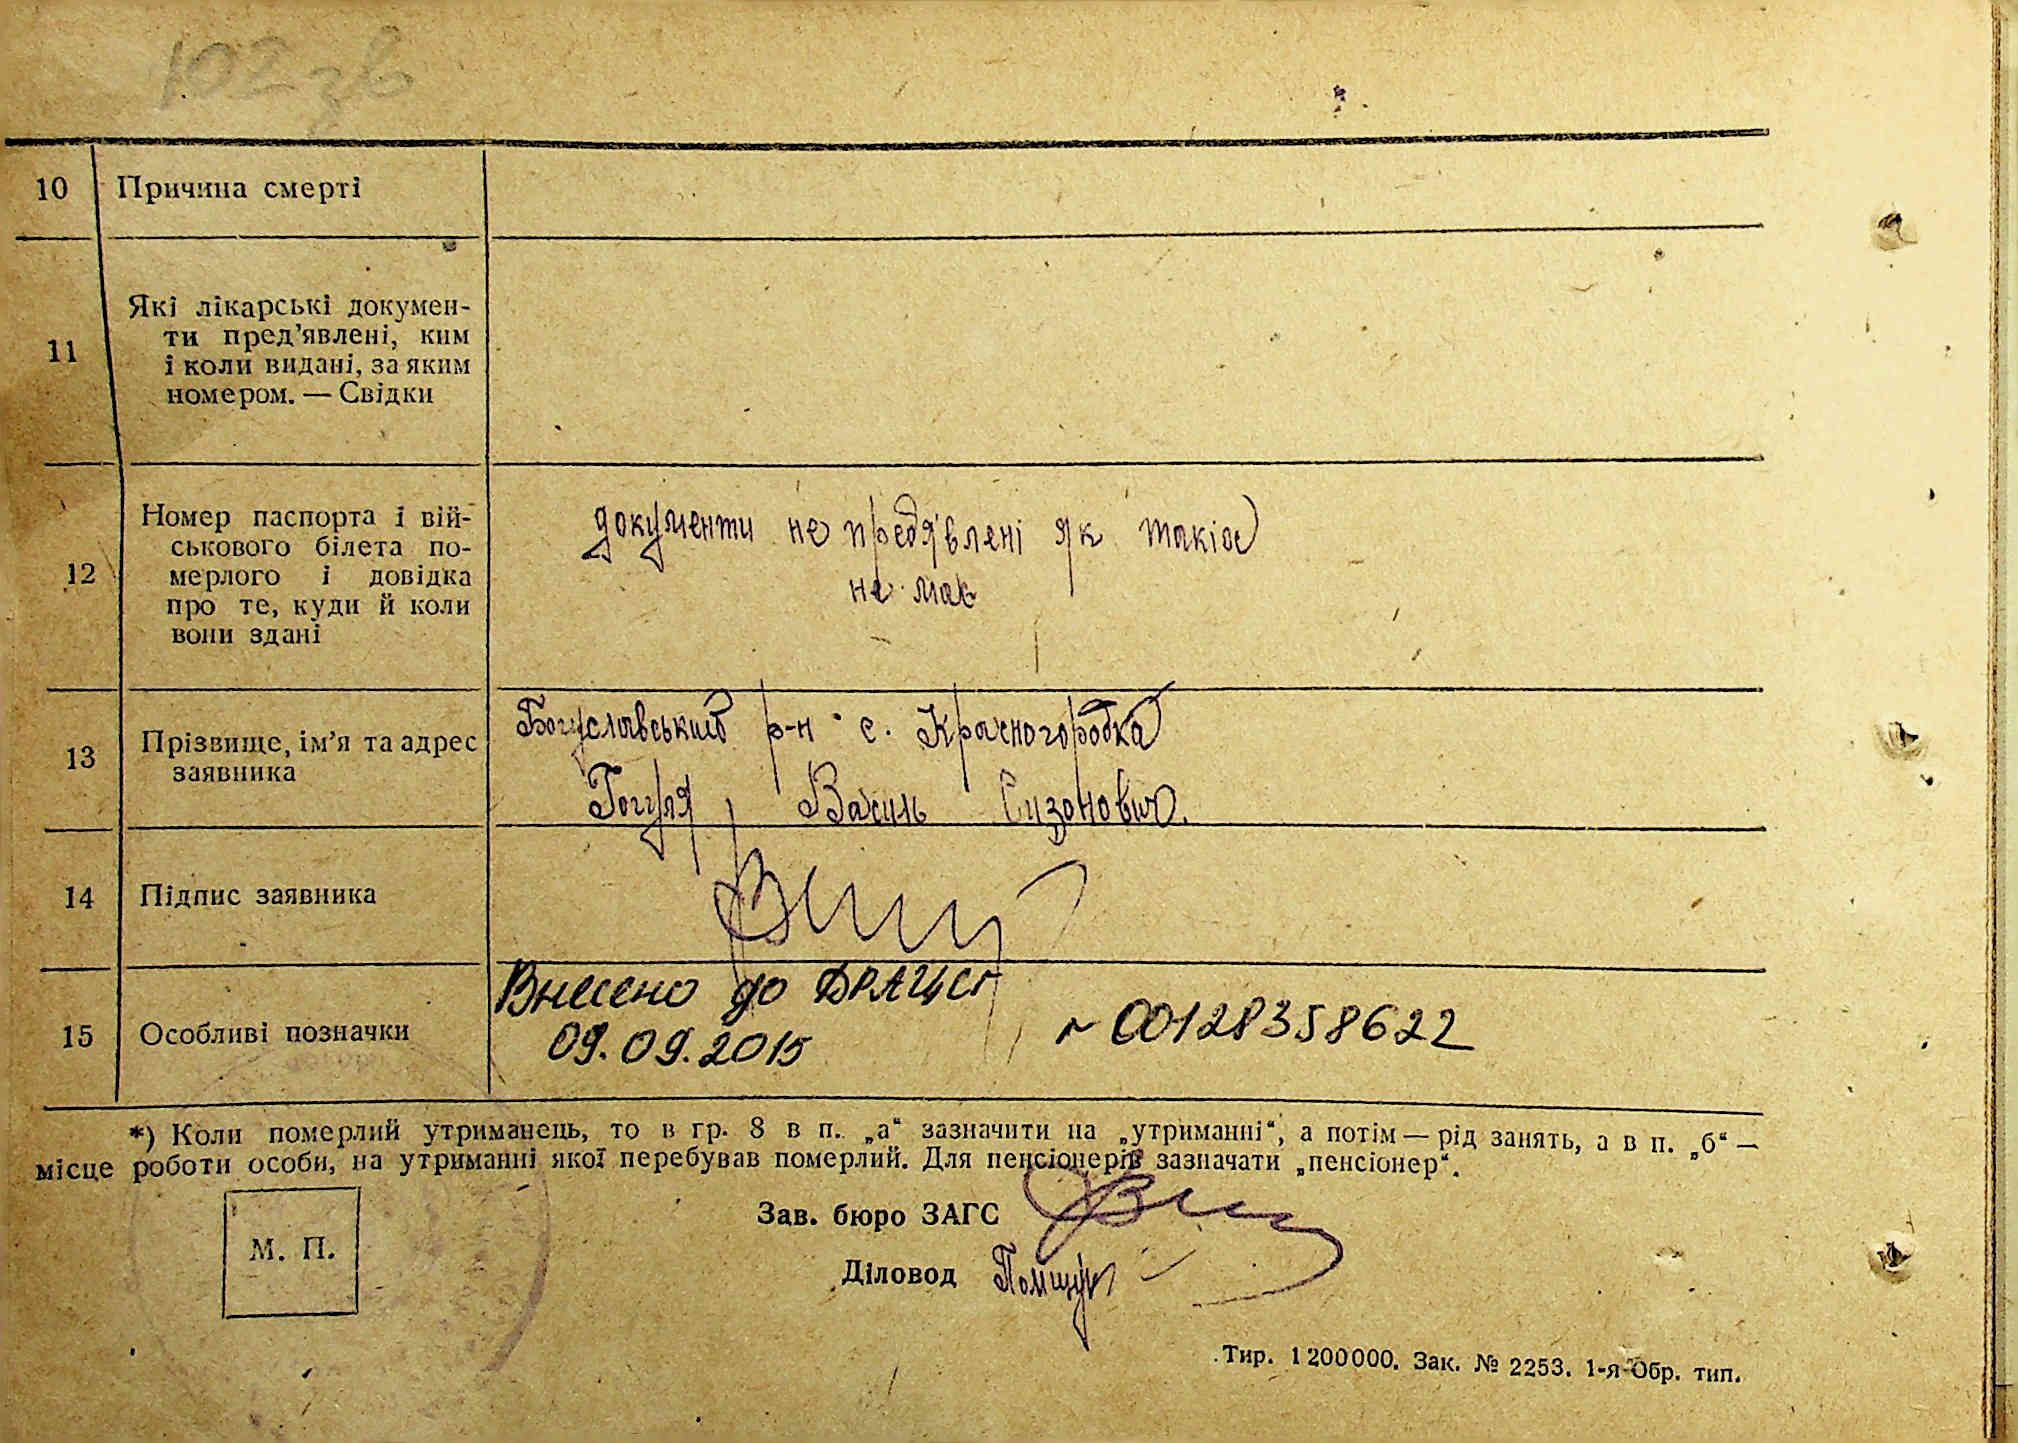 102 зв
10 Причина смерті
11 Які лікарські докумен-
ти пред’явлені, ким
і коли видані, за яким
номером. — Свідки
12 Номер паспорта і вій-
ськового білета по-
мерлого і довідка
про те, куди й коли
вони здані
документи не предʼявлені як такіє
не має
13 Прізвище, ім’я та адрес
заявника
Богуславський р-н с. Красногородка
Гогуля Василь Сизонович.
14 Підпис заявника
15 Особливі позначки
Внесено до ДРАЦСг
09.09.2015
~ 00128358622
*) Коли померлий утриманець, то в гр. 8 в п. „а“ зазначити на „утриманні“, а потім — рід занять, а в п. „б“ —
місце роботи особи, на утриманні якої перебував померлий. Для пенсіонерів зазначати „пенсіонер“.
М. П.
Зав. бюро ЗАГС
Діловод
Тир. 1200000. Зак. № 2253. 1-я Обр. тип.